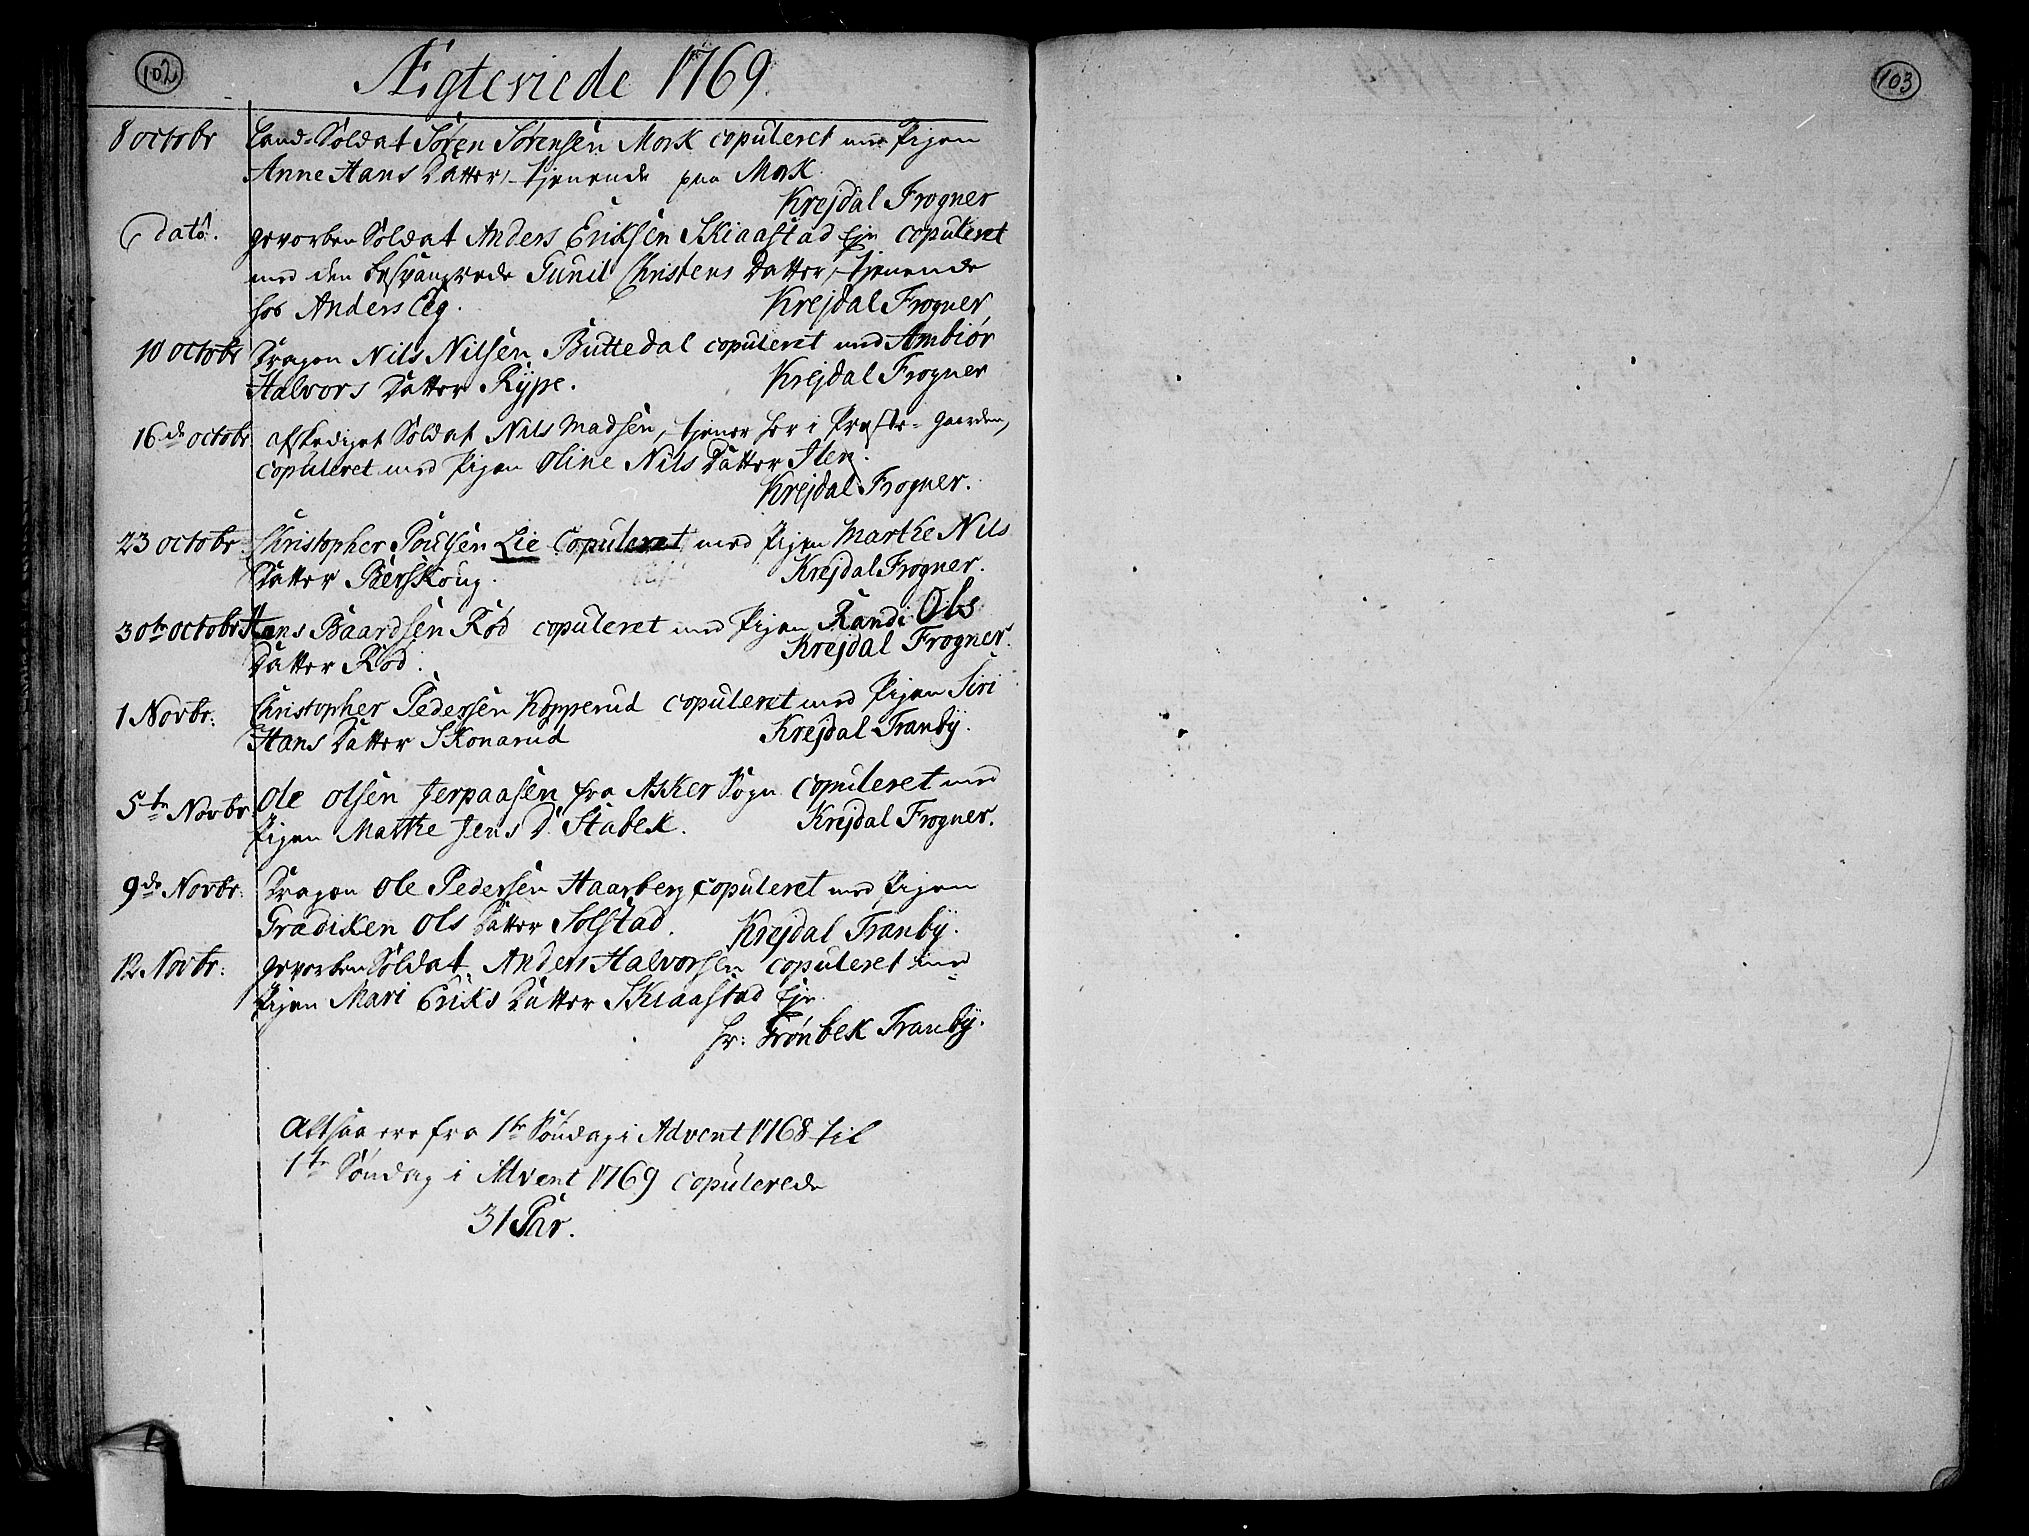 102
Ægteviede 1769.
8 octobr Land-Soldat Sören Sörensen Mork copuleret med Pigen
Anne Hans Datter, tjenende paa Mork.
Krejdal Frogner
dató. gevorben Soldat Anders Eriksen Skiaastad Eje copuleret
med den besvangrede Gunil Christens Datter, tjenende
hos Anders Eeg.
Krejdal Frogner
10 octobr Dragon Nils Nilsen Buttedal copuleret med Ambiör
Halvors Datter Rype.
Krejdal Frogner
16de octobr afskediget Soldat Nils Madsen, tjener her i Præste-Gaarden,
copuleret med Pigen Oline Nils Datter Ilen.
Krejdal Frogner.
23 octobr Christopher Poulsen Lie Copuleret med Pigen Marthe Nils
Datter Berskoug.
Krejdal Frogner.
30te octobr Hans Baardsen Röd copuleret med Pigen Randi Ols
Datter Röd.
Krejdal Frogner.
1 Novbr: Christopher Pedersen Kopperud copuleret med Pigen Siri
Hans Datter Skonarud
Krejdal Tranby.
5te Novbr Ole Olsen Jerpaasen fra Asker Sogn copuleret med
Pigen Marthe Jens D. Stabek.
Krejdal Frogner.
9de Novbr: Dragon Ole Pedersen Haarberg copuleret med Pigen
Gradiken Ols Datter Solstad.
Krejdal Tranby.
12 Novbr: gevorben Soldat Anders Halvorsen copuleret med
Pigen Mari Eriks Datter Skiaastad Eje.
Hr: Trönbek Tranby.
Altsaa ere fra 1te Söndag i Advent 1768 til
1te Söndag i Advent 1769 copulerede
31 Par.
103